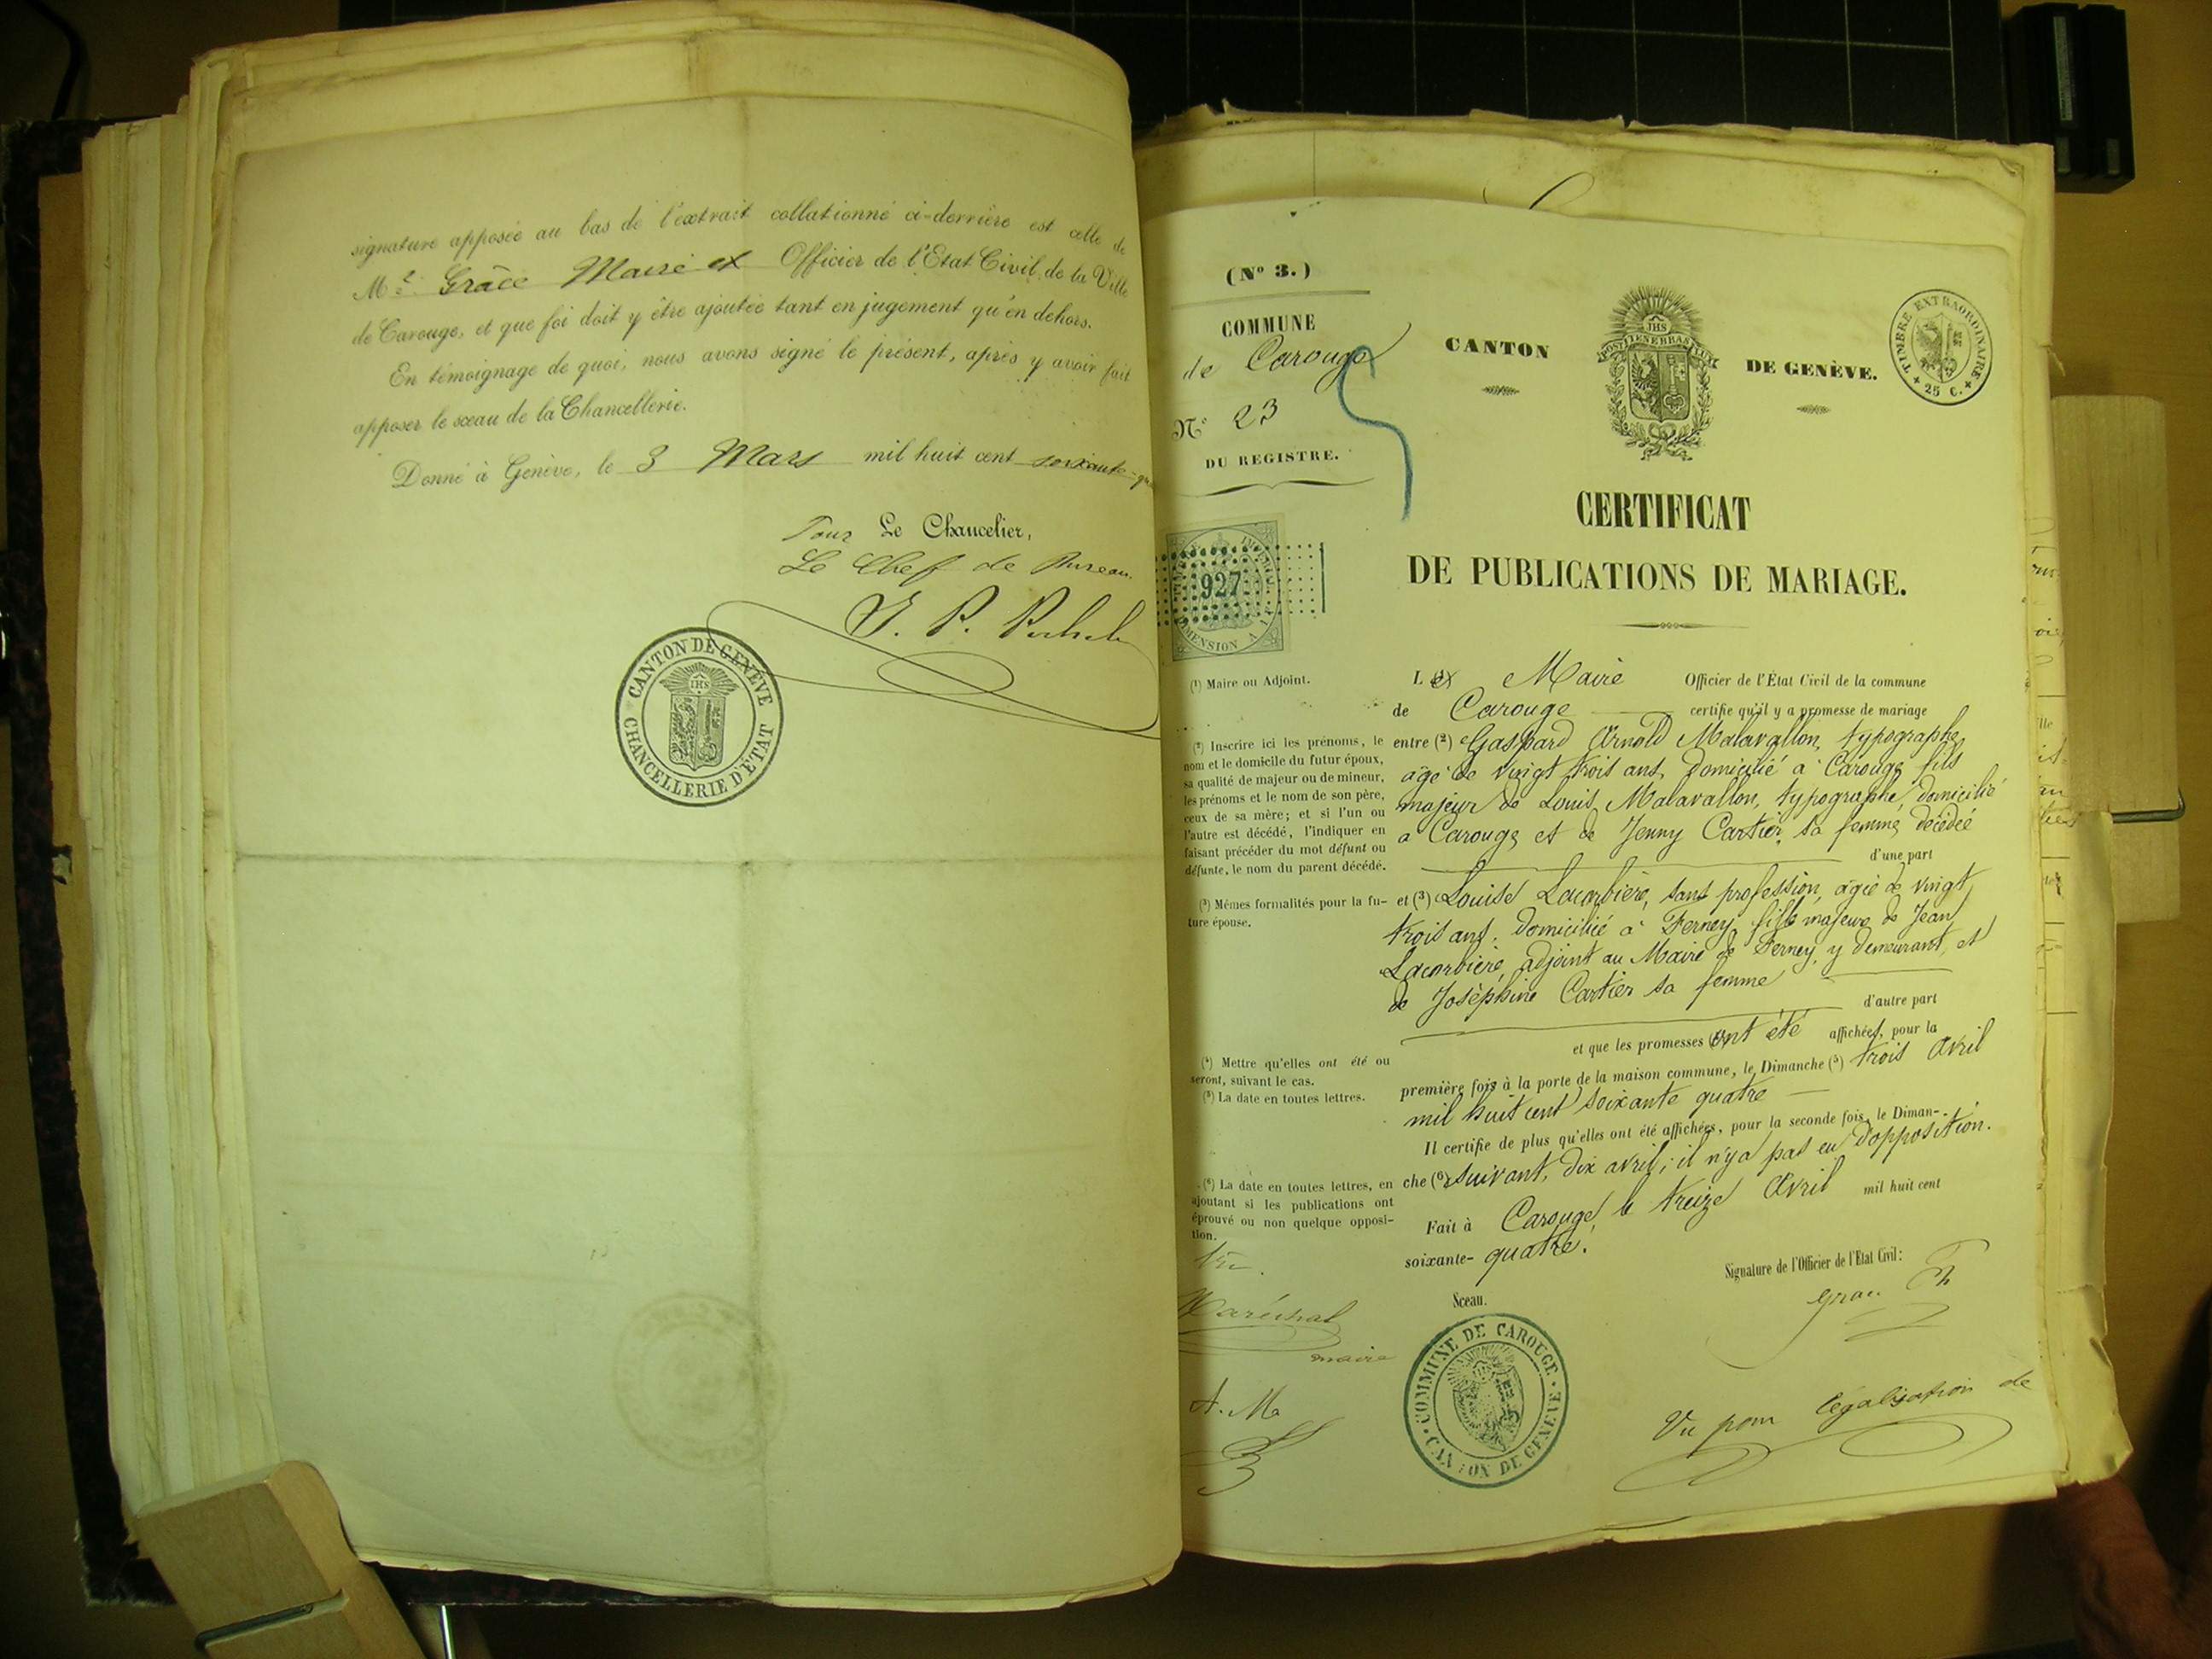 signature apposée au bas de l'extrait collationné ci-derrière est celle de
Mr. Grâce Maire et Officier de l'Etat Civil de la Ville
de Carouge, et que foi doit y être ajoutée tant en jugement qu'en dehors.
En témoignage de quoi, nous avons signé le présent, après y avoir fait
apposer le sceau de la Chancellerie.
Donné à Genève, le 3 Mars mil huit cent soixante-
Pour Le Chancelier,
Le Chef de Bureau
J. P.
CANTON DE GENÈVE
CHANCELLERIE D'ÉTAT
(No 3.)
COMMUNE
de Carouge
No 23
DU REGISTRE.
CANTON DE GENÈVE.
JHS
POST TENEBRAS LUX
TIMBRE EXTRAORDINAIRE
25 C.
927
CERTIFICAT
DE PUBLICATIONS DE MARIAGE.
(1) Maire ou Adjoint.
L et Maire Officier de l'État Civil de la commune
de Carouge certifie qu'il y a promesse de mariage
(2) Inscrire ici les prénoms, le
nom et le domicile du futur époux,
sa qualité de majeur ou de mineur,
les prénoms et le nom de son père,
ceux de sa mère; et si l'un ou
l'autre est décédé, l'indiquer en
faisant précéder du mot défunt ou
défunte, le nom du parent décédé.
entre (2) Gaspard Arnold Malavallon, typographe,
âgé de vingt trois ans, domicilié à Carouge, fils
majeur de Louis Malavallon, typographe, domicilié
à Carouge et de Jenny Cartier, sa femme, décédée
d'une part
(3) Mêmes formalités pour la fu-
ture épouse.
et (3) Louise Lacorbière, sans profession, âgée de vingt
trois ans, domiciliée à Ferney, fille majeure de Jean
Lacorbière, adjoint au Maire de Ferney, y demeurant, et
de Joséphine Cartier sa femme
d'autre part
(4) Mettre qu'elles ont été ou
seront, suivant le cas.
(5) La date en toutes lettres.
et que les promesses ont été affichées, pour la
première fois à la porte de la maison commune, le Dimanche (5) trois Avril
mil huit cent soixante quatre
Il certifie de plus qu'elles ont été affichées, pour la seconde fois, le Diman-
che (6) suivant, dix avril; il n'y a pas eu d'opposition.
(6) La date en toutes lettres, en
ajoutant si les publications ont
éprouvé ou non quelque opposi-
tion.
Fait à Carouge, le treize Avril mil huit cent
soixante-quatre.
Signature de l'Officier de l'État Civil:
Sceau.
COMMUNE DE CAROUGE
CANTON DE GENÈVE
Maréchal
maire
Vu pour légalisation de